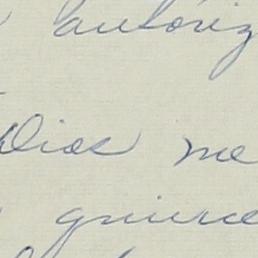 autoriz
Dios me
quiere